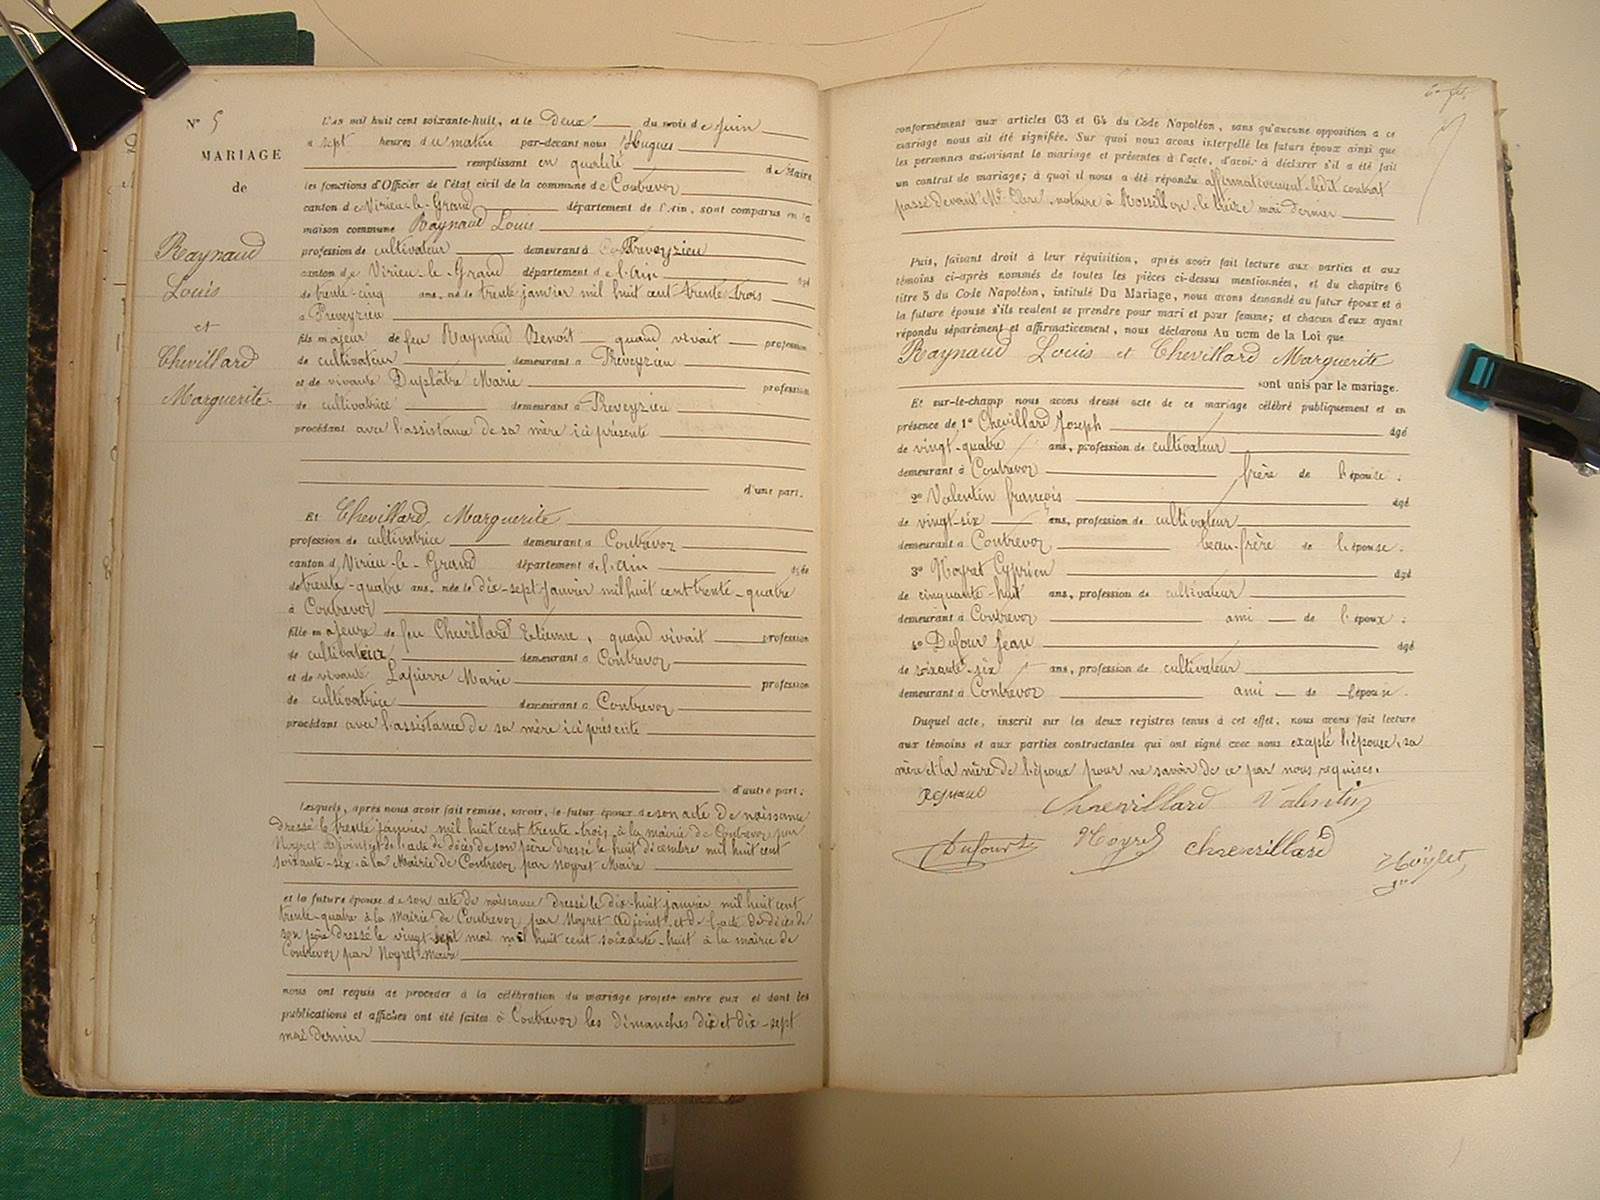 N° 5
MARIAGE
de
Raynaud
Louis
et
Chevillard
Marguerite
L'an mil huit cent soixante-huit, et le deux du mois de Juin
à sept heures du matin par-devant nous Hugues
remplissant en qualité de Maire
les fonctions d'Officier de l'état civil de la commune de Contrevoz
canton de Virieu-le-Grand département de l'Ain, sont comparus en la
maison commune Raynaud Louis
profession de cultivateur demeurant à Preveyzieu
canton de Virieu-le-Grand département de l'Ain âgé
de trente-cinq ans, né le trente janvier mil huit cent trente-trois
à Preveyzieu
fils majeur de feu Raynaud Benoît quand vivait profession
de cultivateur demeurant à Preveyzieu
et de vivante Duplâtre Marie profession
de cultivatrice demeurant à Preveyzieu
procédant avec l'assistance de sa mère ici présente
d'une part.
Et Chevillard Marguerite
profession de cultivatrice demeurant à Contrevoz
canton de Virieu-le-Grand département de l'Ain âgée
de trente-quatre ans, née le dix-sept janvier mil huit cent trente-quatre
à Contrevoz
fille majeure de feu Chevillard Etienne, quand vivait profession
de cultivateur demeurant à Contrevoz
et de vivante Lapierre Marie profession
de cultivatrice demeurant à Contrevoz
procédant avec l'assistance de sa mère ici présente
d'autre part.
Lesquels, après nous avoir fait remise, savoir, le futur époux de son acte de naissance
dressé le trente janvier mil huit cent trente-trois à la mairie de Contrevoz par
Noyret adjoint et de l'acte de décès de son père dressé le huit décembre mil huit cent
soixante-six à la Mairie de Contrevoz par Noyret Maire
et la future épouse de son acte de naissance dressé le dix-huit janvier mil huit cent
trente-quatre à la Mairie de Contrevoz par Noyret adjoint et de l'acte de décès de
son père dressé le vingt-sept mai mil huit cent soixante-huit à la mairie de
Contrevoz par Noyret maire
nous ont requis de procéder à la célébration du mariage projeté entre eux et dont les
publications et affiches ont été faites à Contrevoz les dimanches dix et dix-sept
mai dernier
conformément aux articles 63 et 64 du Code Napoléon, sans qu'aucune opposition a ce
mariage nous ait été signifiée. Sur quoi nous avons interpellé les futurs époux ainsi que
les personnes autorisant le mariage et présentes à l'acte, d'avoir à déclarer s'il a été fait
un contrat de mariage; à quoi il nous a été répondu affirmativement ledit contrat
passé devant Me notaire à Rossillon, le treize mai dernier
Puis, faisant droit à leur réquisition, après avoir fait lecture aux parties et aux
témoins ci-après nommés de toutes les pièces ci-dessus mentionnées, et du chapitre 6
titre 5 du Code Napoléon, intitulé Du Mariage, nous avons demandé au futur époux et à
la future épouse s'ils veulent se prendre pour mari et pour femme; et chacun d'eux ayant
répondu séparément et affirmativement, nous déclarons Au nom de la Loi que
Raynaud Louis et Chevillard Marguerite
sont unis par le mariage.
Et sur-le-champ nous avons dressé acte de ce mariage célébré publiquement et en
présence de 1° Chevillard Joseph âgé
de vingt-quatre ans, profession de cultivateur
demeurant à Contrevoz frère de l'épouse.
2° Valentin françois âgé
de vingt-six ans, profession de cultivateur
demeurant à Contrevoz beau-frère de l'épouse.
3° Noyret Cyprien âgé
de cinquante-huit ans, profession de cultivateur
demeurant à Contrevoz ami de l'époux.
4° Dufour Jean âgé
de soixante-six ans, profession de cultivateur
demeurant à Contrevoz ami de l'épouse.
Duquel acte, inscrit sur les deux registres tenus à cet effet, nous avons fait lecture
aux témoins et aux parties contractantes qui ont signé avec nous excepté l'épouse, sa
mère et la mère de l'époux pour ne savoir de ce par nous requises.
Chevillard Valentin
Dufour Noyret Chevillard